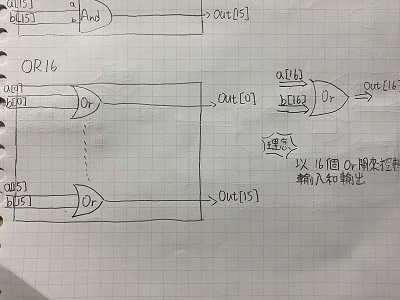 a[15]
b[15]
a
b
And
Out[15]
OR16
a[0]
b[0]
Or
Out[0]
a[15]
b[15]
Or
Out[15]
a[16]
b[16]
Or
Out[16]
理念
以 16個 Or 閘來控制
輸入和輸出